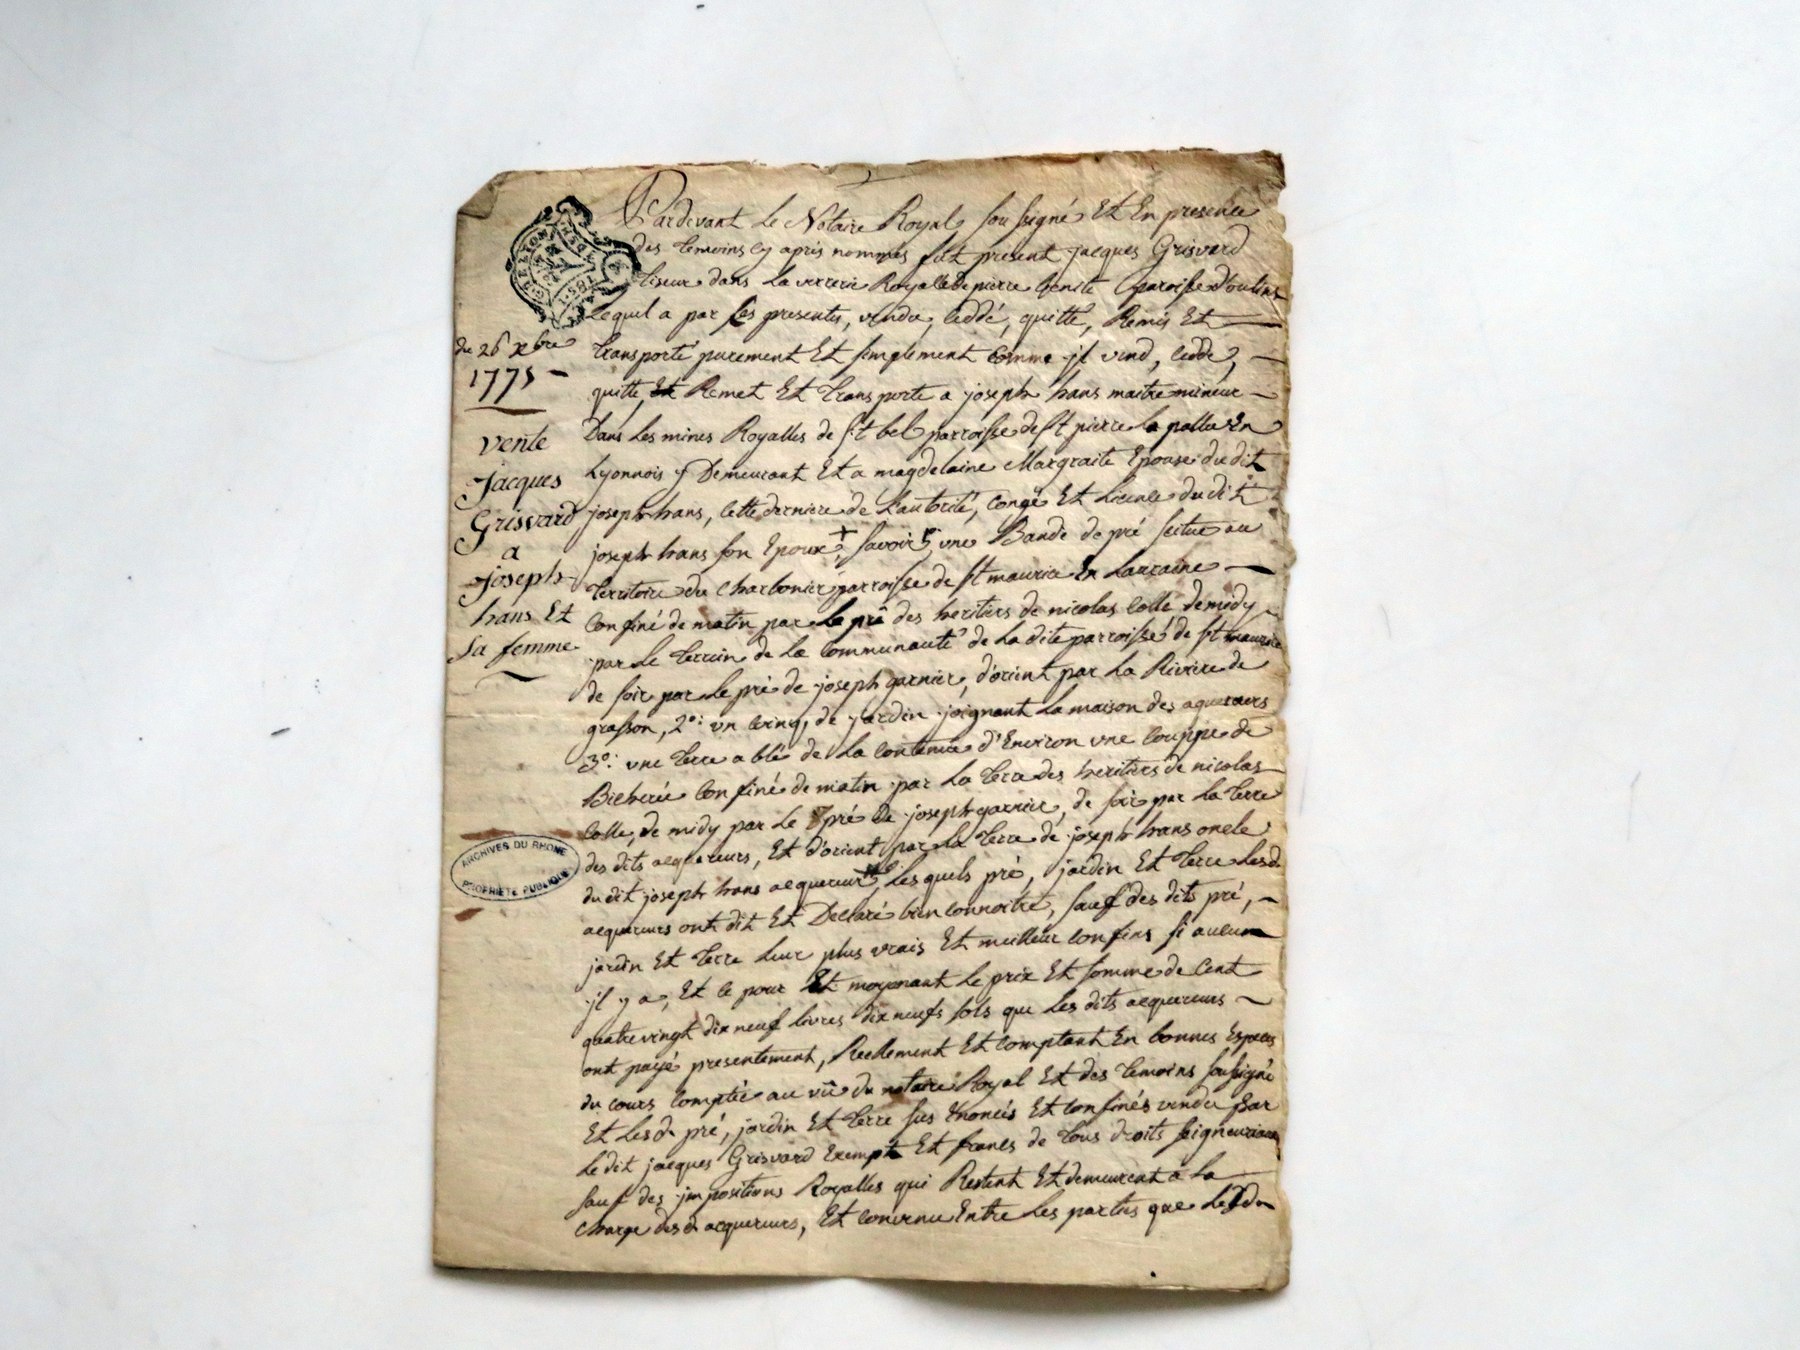 Pardevant Le Notaire Royal sousigné Et En presence
des temoins cy après nommés fut present jacques Grisvard
tiseur dans La verrerie Royalle de pierre benite paroisse d'oulins
Lequel a par Les presentes, vendu, ceddé, quitté, Remis Et
transporté purement Et simplement comme jl vend, cedde,
quitte, Et Remet Et transporte a joseph hans maitre mineur
Dans Les mines Royalles de st bel parroisse de st pierre La pallu En
Lyonnois y Demeurant Et a magdelaine Margraite Epouse du dit
joseph hans, cette derniere de L'autorité, congé Et Licence du dit
joseph hans son Epoux, savoir une Bande de pré scitue au
territoire du Charbonier parroisse de st maurice En Lorraine
Confiné de matin par Le pré des heritiers de nicolas Colle de midy
par Le terrein de La Communauté de La dite parroisse de st maurice
de soir par Le pré de joseph garnier, d'orient par La Riviere de
grasson, 2o: vn coing de jardin joignant La maison des aquereurs
3o: vne terre a blé de La contenue d'Environ vne couppe de
Bicherée Confiné de matin par La terre des heritiers de nicolas
Colle, de midy par Le pré de joseph garnier, de soir par La terre
des dits acquereurs, Et d'orient par La terre de joseph hans oncle
du dit joseph hans acquereur, Lesquels pré, jardin Et terre Lesd.
acquereurs ont dit Et Declaré bien connoitre, sauf des dits pré,
jardin Et terre Leur plus vrais Et meilleur confins si aucun
jl y a, Et ce pour Et moyenant Le prix Et somme de Cent
quatre vingt dix neuf Livres dix neufs sols que Les dits acquereurs
ont payé presentement, Reellement Et comptant En bonnes Especes
du cours Comptée au vû du notaire Royal Et des temoins sousigné
Et Lesd. pré, jardin Et terre sus Enoncés Et confinés vendu par
Le dit jacques Grisvard Exempt Et francs de tous droits seigneuriaux
sauf des jmpositions Royalles qui Restent Et demeurent a La
charge desd. acquereurs, Et convenu Entre Les parties que Led.
du 26 xbre
1775
vente
jacques
Grisvard
a
joseph
hans Et
sa femme
G. DE LYON
ARCHIVES DU RHONE
PROPRIÉTÉ PUBLIQUE